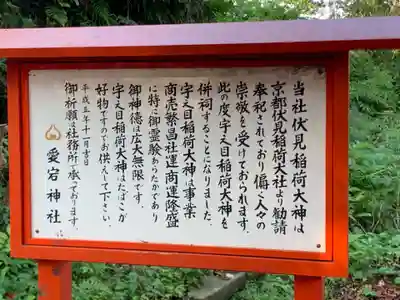 当社伏見稲荷大神は
京都伏見稲荷大社より勧請
奉祀されており偏く人々の
崇敬を受けておられます。
此の度宇え目稲荷大神を
併祠することになりました。
宇え目稲荷大神は事業
商売繁昌社運商運隆盛
に特に御霊験あらたかであり
御神徳は広大無限です。
宇え目稲荷大神はたばこが
好物ですのでお供えして下さい。
平成五年十一月吉日
御祈願は社務所で承っております。
愛宕神社